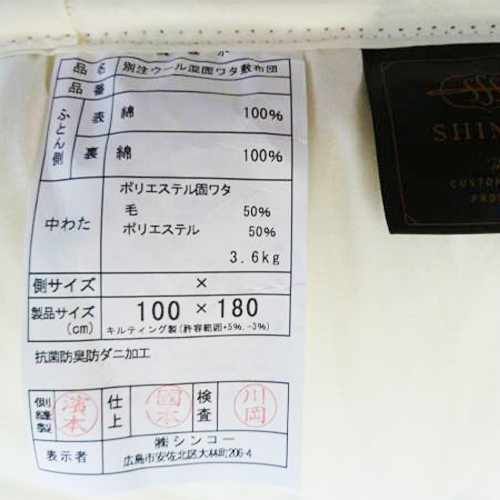 品名 別注ウール混固ワタ敷布団
品番
ふとん側 表 綿 100%
裏 綿 100%
中わた ポリエステル固ワタ
毛 50%
ポリエステル 50%
3.6kg
側サイズ ×
製品サイズ(cm) 100 × 180
キルティング製(許容範囲+5%,-3%)
抗菌防臭防ダニ加工
側縫製 濱本 仕上 國本 検査 川岡
表示者 ㈱シンコー
広島市安佐北区大林町206-4
SHIN
CUSTOM
PRO